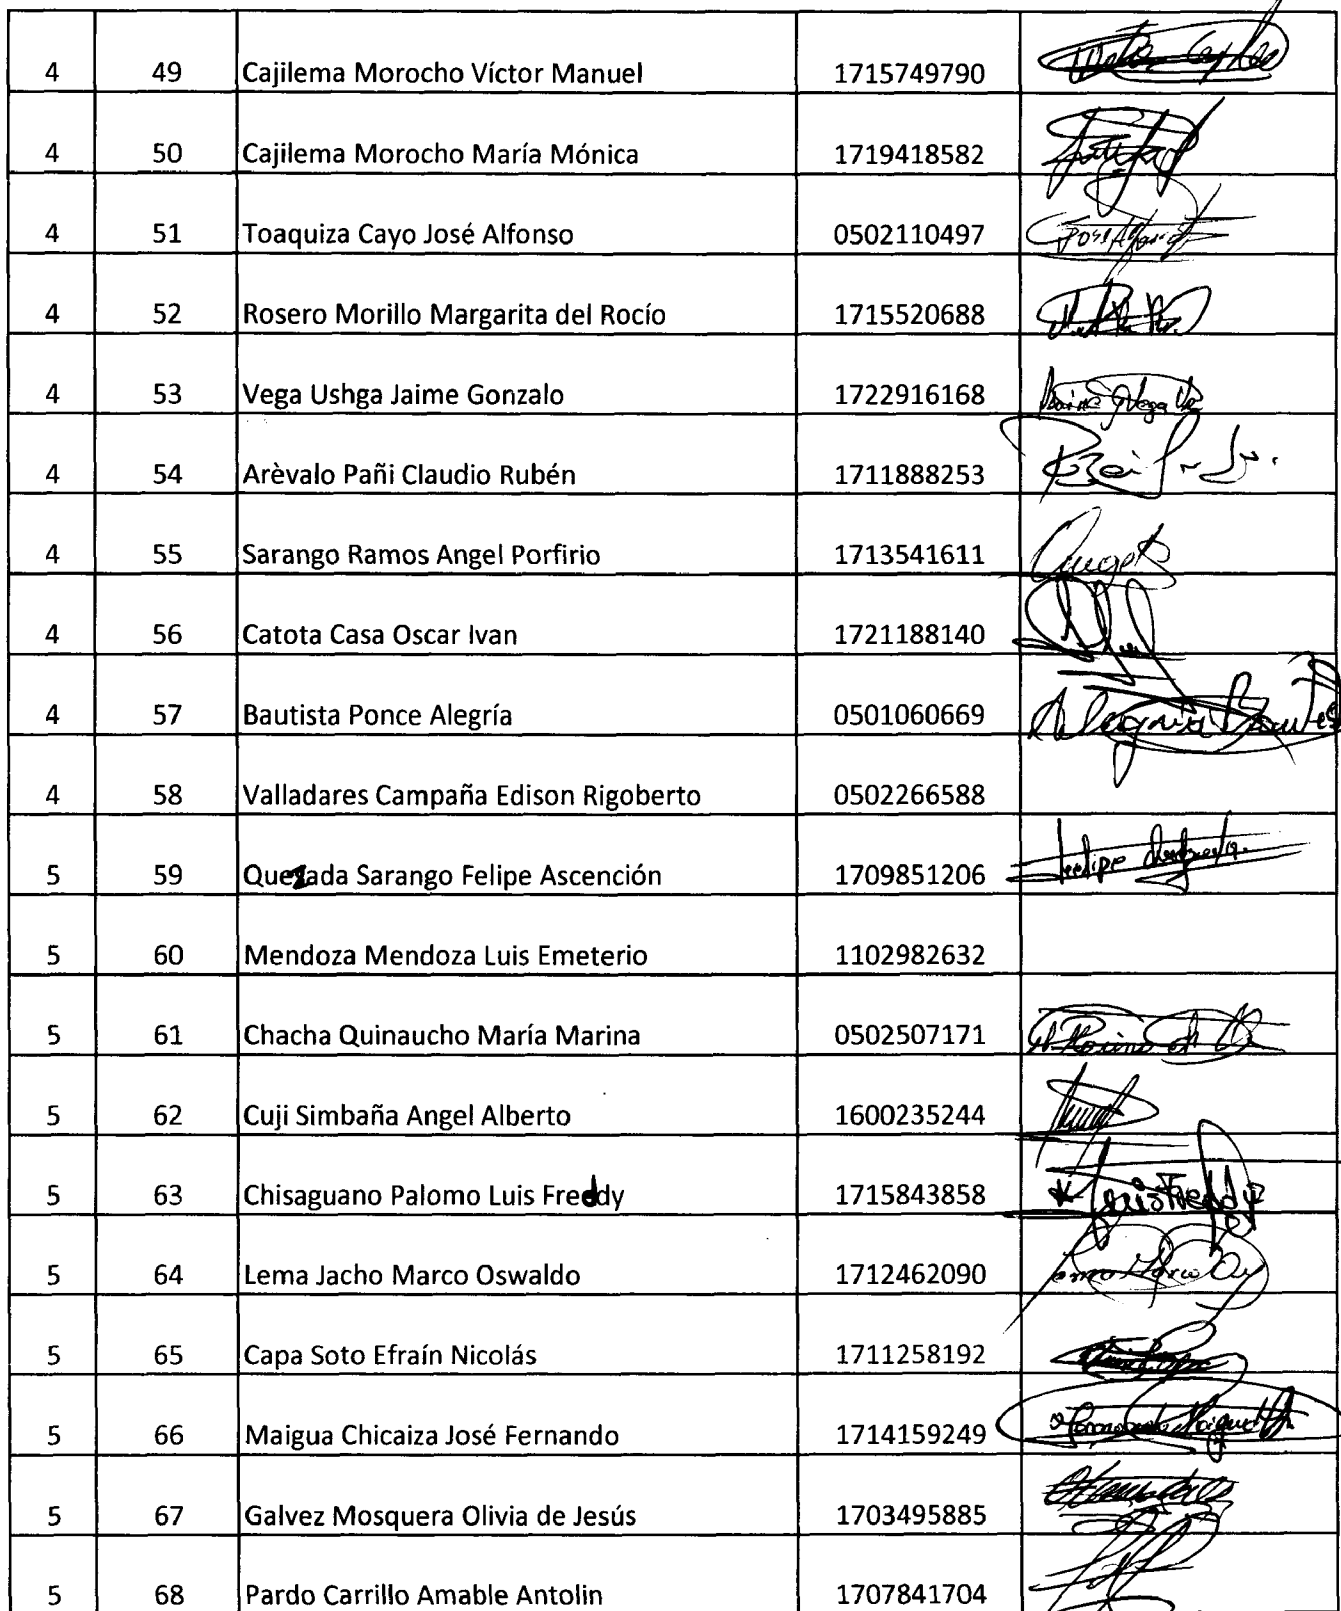 4 49 Cajilema Morocho Víctor Manuel 1715749790
4 50 Cajilema Morocho María Mónica 1719418582
4 51 Toaquiza Cayo José Alfonso 0502110497
4 52 Rosero Morillo Margarita del Rocío 1715520688
4 53 Vega Ushga Jaime Gonzalo 1722916168
4 54 Arèvalo Pañi Claudio Rubén 1711888253
4 55 Sarango Ramos Angel Porfirio 1713541611
4 56 Catota Casa Oscar Ivan 1721188140
4 57 Bautista Ponce Alegría 0501060669
4 58 Valladares Campaña Edison Rigoberto 0502266588
5 59 Quezada Sarango Felipe Ascención 1709851206
5 60 Mendoza Mendoza Luis Emeterio 1102982632
5 61 Chacha Quinaucho María Marina 0502507171
5 62 Cuji Simbaña Angel Alberto 1600235244
5 63 Chisaguano Palomo Luis Freddy 1715843858 Luis Freddy
5 64 Lema Jacho Marco Oswaldo 1712462090
5 65 Capa Soto Efraín Nicolás 1711258192
5 66 Maigua Chicaiza José Fernando 1714159249
5 67 Galvez Mosquera Olivia de Jesús 1703495885
5 68 Pardo Carrillo Amable Antolin 1707841704